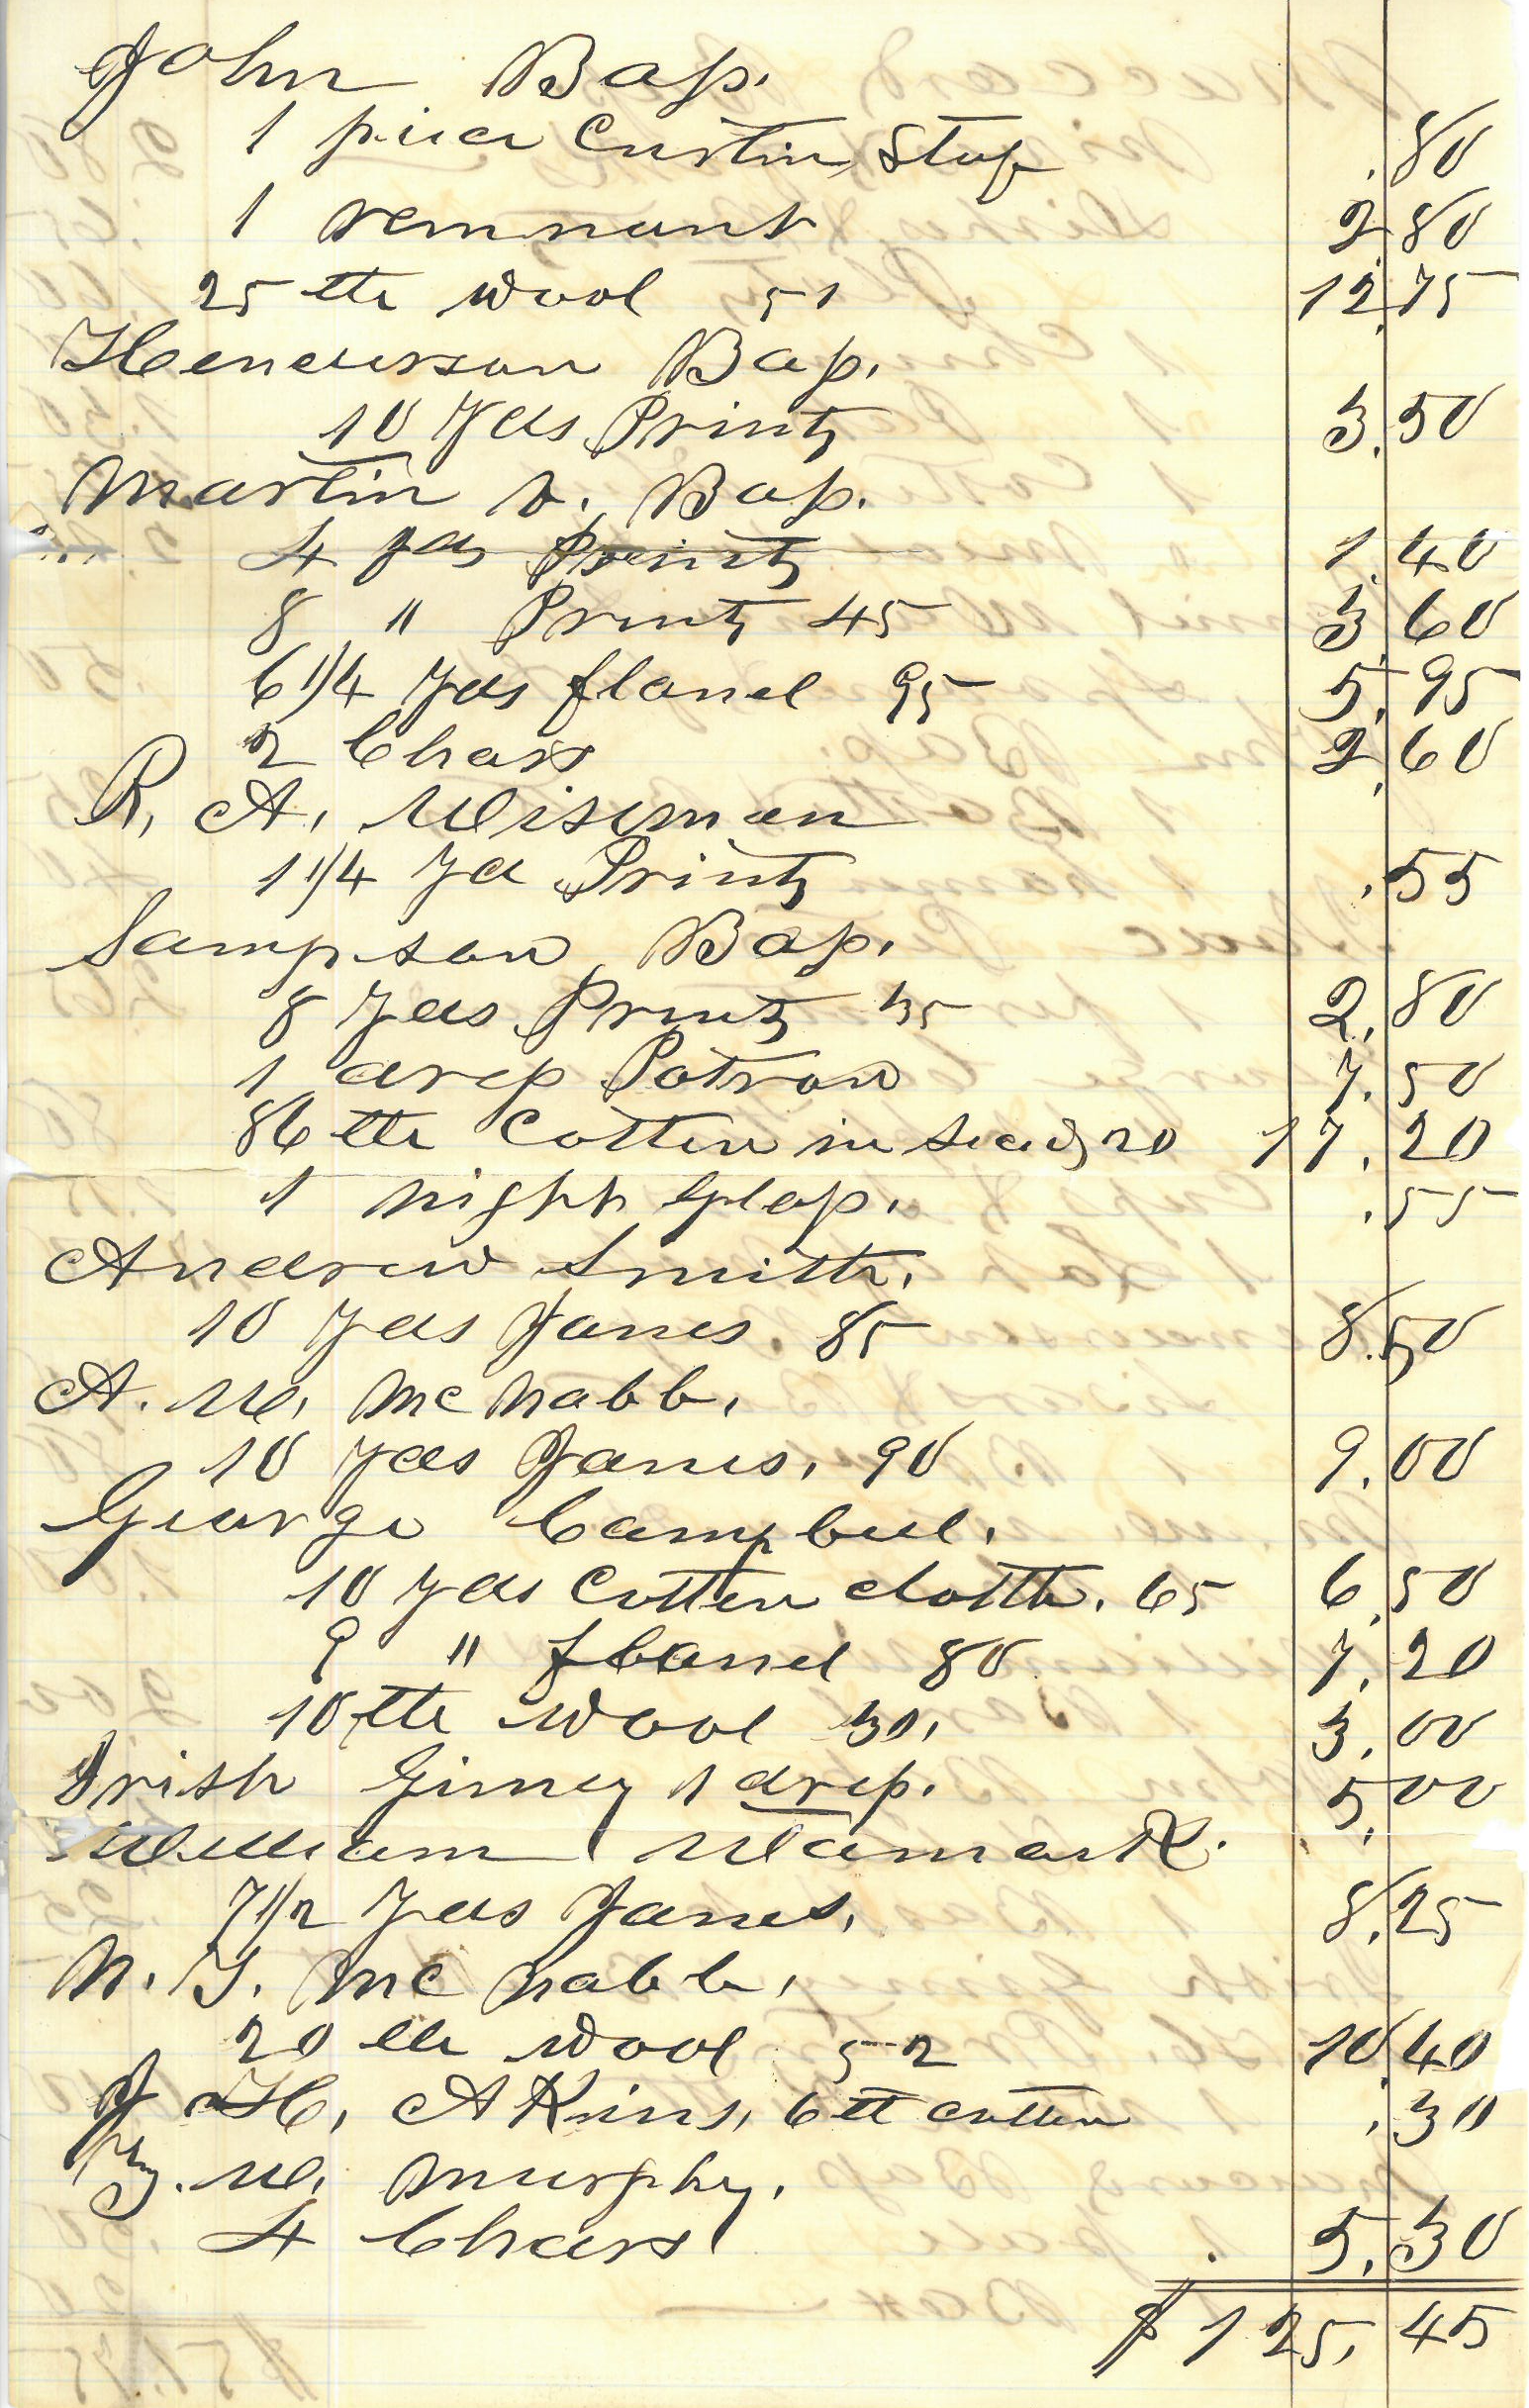 John Bass.
1 piece Curtin Stuf .80
1 remnant 2.80
25 lbs wool 51 12.75
Henderson Bass.
10 yds Prints 3.50
Martin v. Bass.
4 yds Prints 1.40
8 " Prints 45 3.60
6 1/4 yds flanel 95 5.95
2 Chars 2.60
R. A. Wiseman
1 1/4 yd Prints .55
Sampson Bass.
8 yds Prints 35 2.80
1 dress Patron 7.50
86 lbs Cotten in seed 20 17.20
1 night Glass. .55
Andrew Smith.
10 yds Janes. 85 8.50
A. W. McNabb.
10 yds Janes. 90 9.00
George Campbell.
10 yds Cotten cloth. 65 6.50
9 " flanel 80 7.20
10 lbs wool 30. 3.00
Irish Ginney 1 dress. 5.00
William Wamack.
7 1/2 yds Janes. 8.25
N. G. McNabb.
20 lbs wool 52 10.40
J H. AKins. 6 lb cotten .30
W. Murphy.
4 Chars 5.30
$125.45